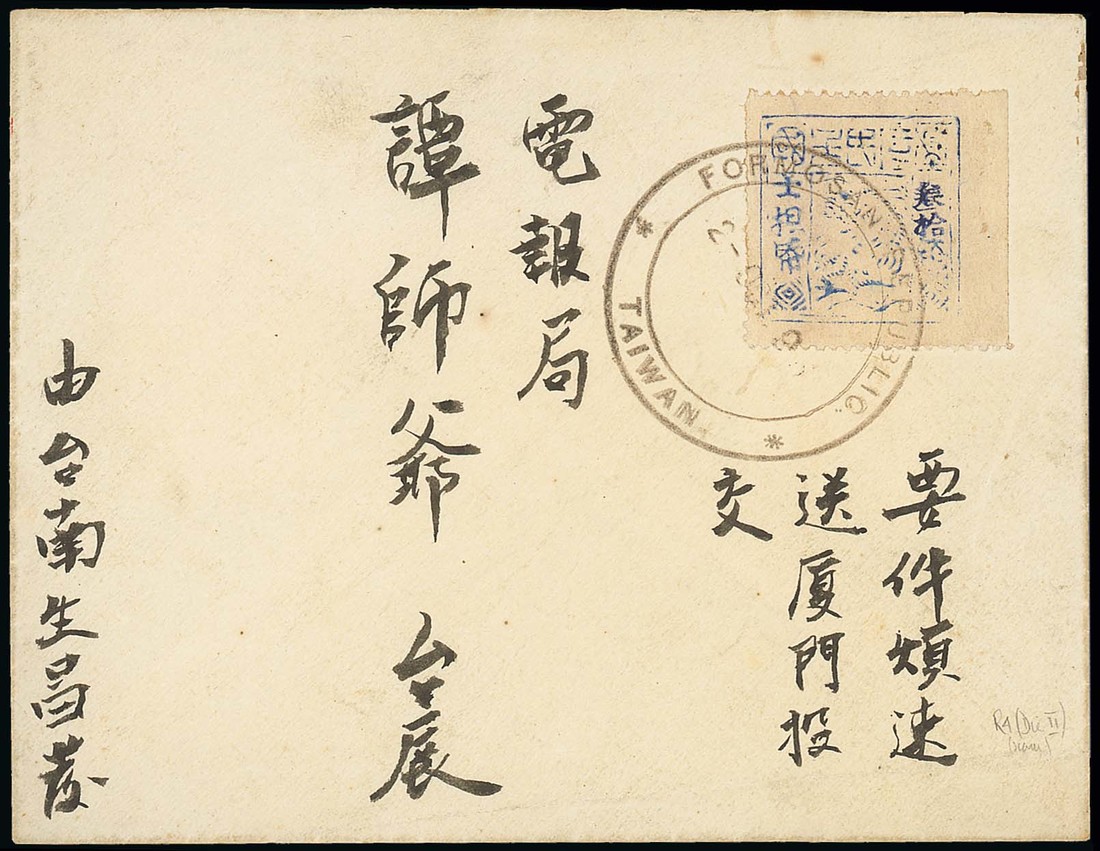 要件煩速
送厦門投
交
電報局
譚師爺 台展
由台南生昌發
FORMOSAN REPUBLIC.
TAIWAN.
士担帋
叁拾
R4 (Die II)